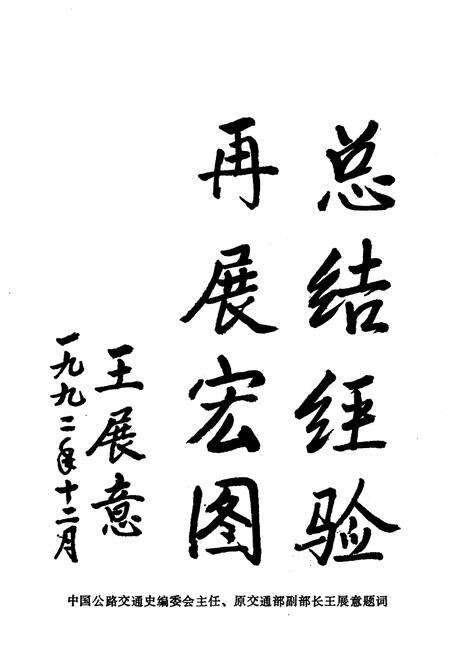 总结经验
再展宏图
王展意
一九九二年十二月
中国公路交通史编委会主任、原交通部副部长王展意题词